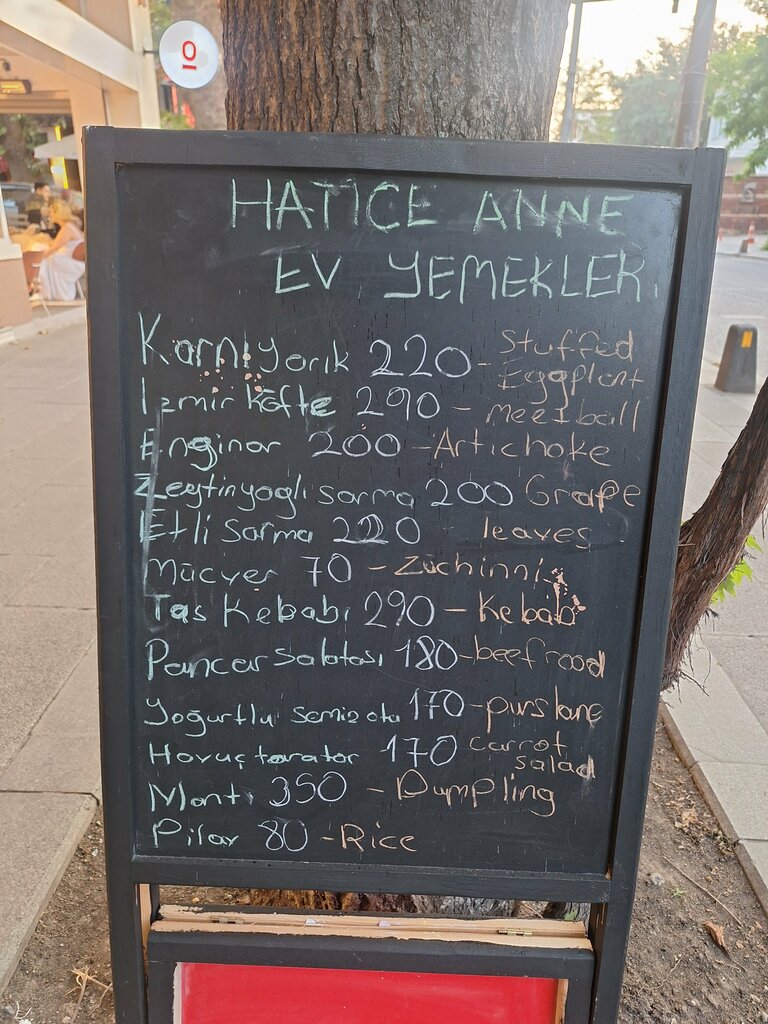 HATİCE ANNE
EV YEMEKLERİ
Karnıyarık 220 - Stuffed Eggplant
İzmir köfte 290 - meetball
Enginar 200 - Artichoke
Zeytinyağlı sarma 200 Grape
Etli sarma 220 leaves
Mücver 70 - Zuchinnis
Tas Kebabı 290 - Kebab
Pancar salatası 180 - beefrood
Yoğurtlu semizotu 170 - purslane
Havuç tarator 170 carrot salad
Mantı 350 - Dumpling
Pilav 80 - Rice